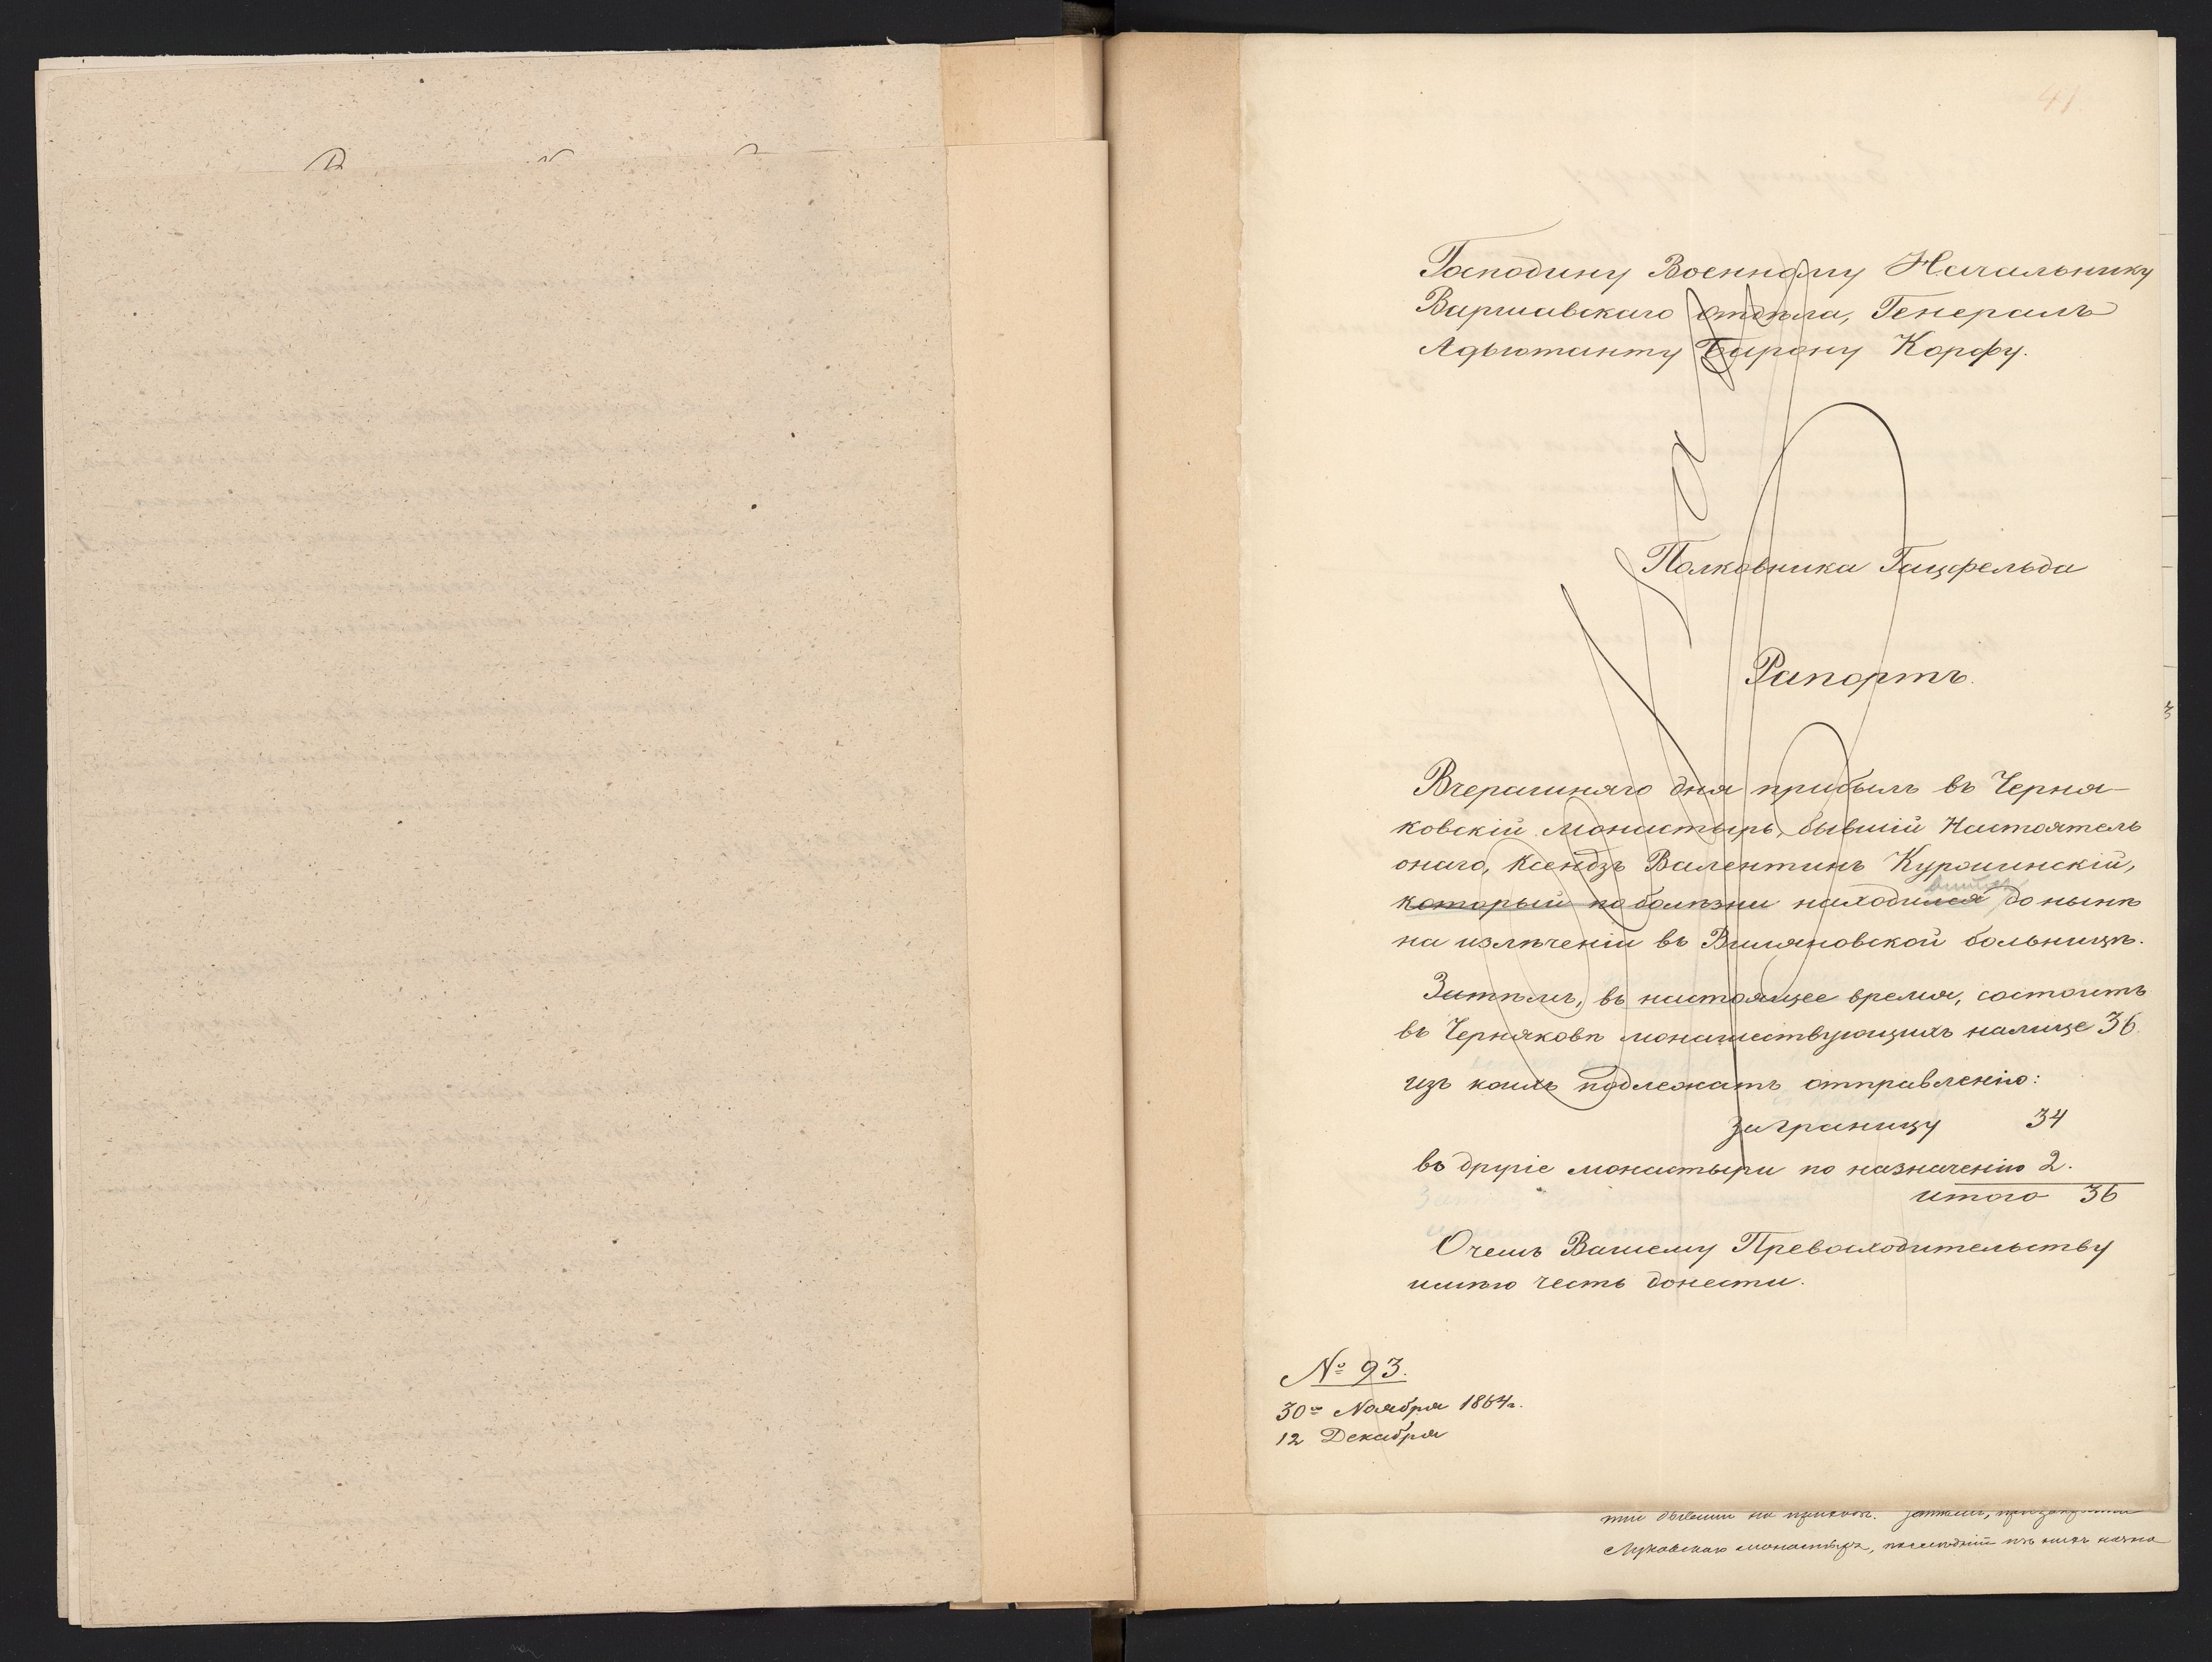 41
Господину Военному Начальнику
Варшавскаго отдѣла, Генералъ
Адъютанту Барону Корфу.
Полковника Гацфельда
Рапортъ.
Вчерашняго дня прибылъ въ Черня-
ковскій монастырь, бывшій Настоятель
онаго, ксендзъ Валентинъ Курошинскій,
который по болѣзни находился до нынѣ
на излѣченіи въ Виляновской больницѣ.
Затѣмъ, въ настоящее время, состоитъ
въ Черняковѣ монашествующихъ налице 36.
изъ коихъ подлежатъ отправленію:
заграницу 34
въ другіе монастыри по назначенію 2.
итого 36
О чемъ Вашему Превосходительству
имѣю честь донести.
№ 93.
30го Ноября 1864г.
12 Декабря
бывшій на
Луковскаго монастыря, послѣдній изъ нихъ назна